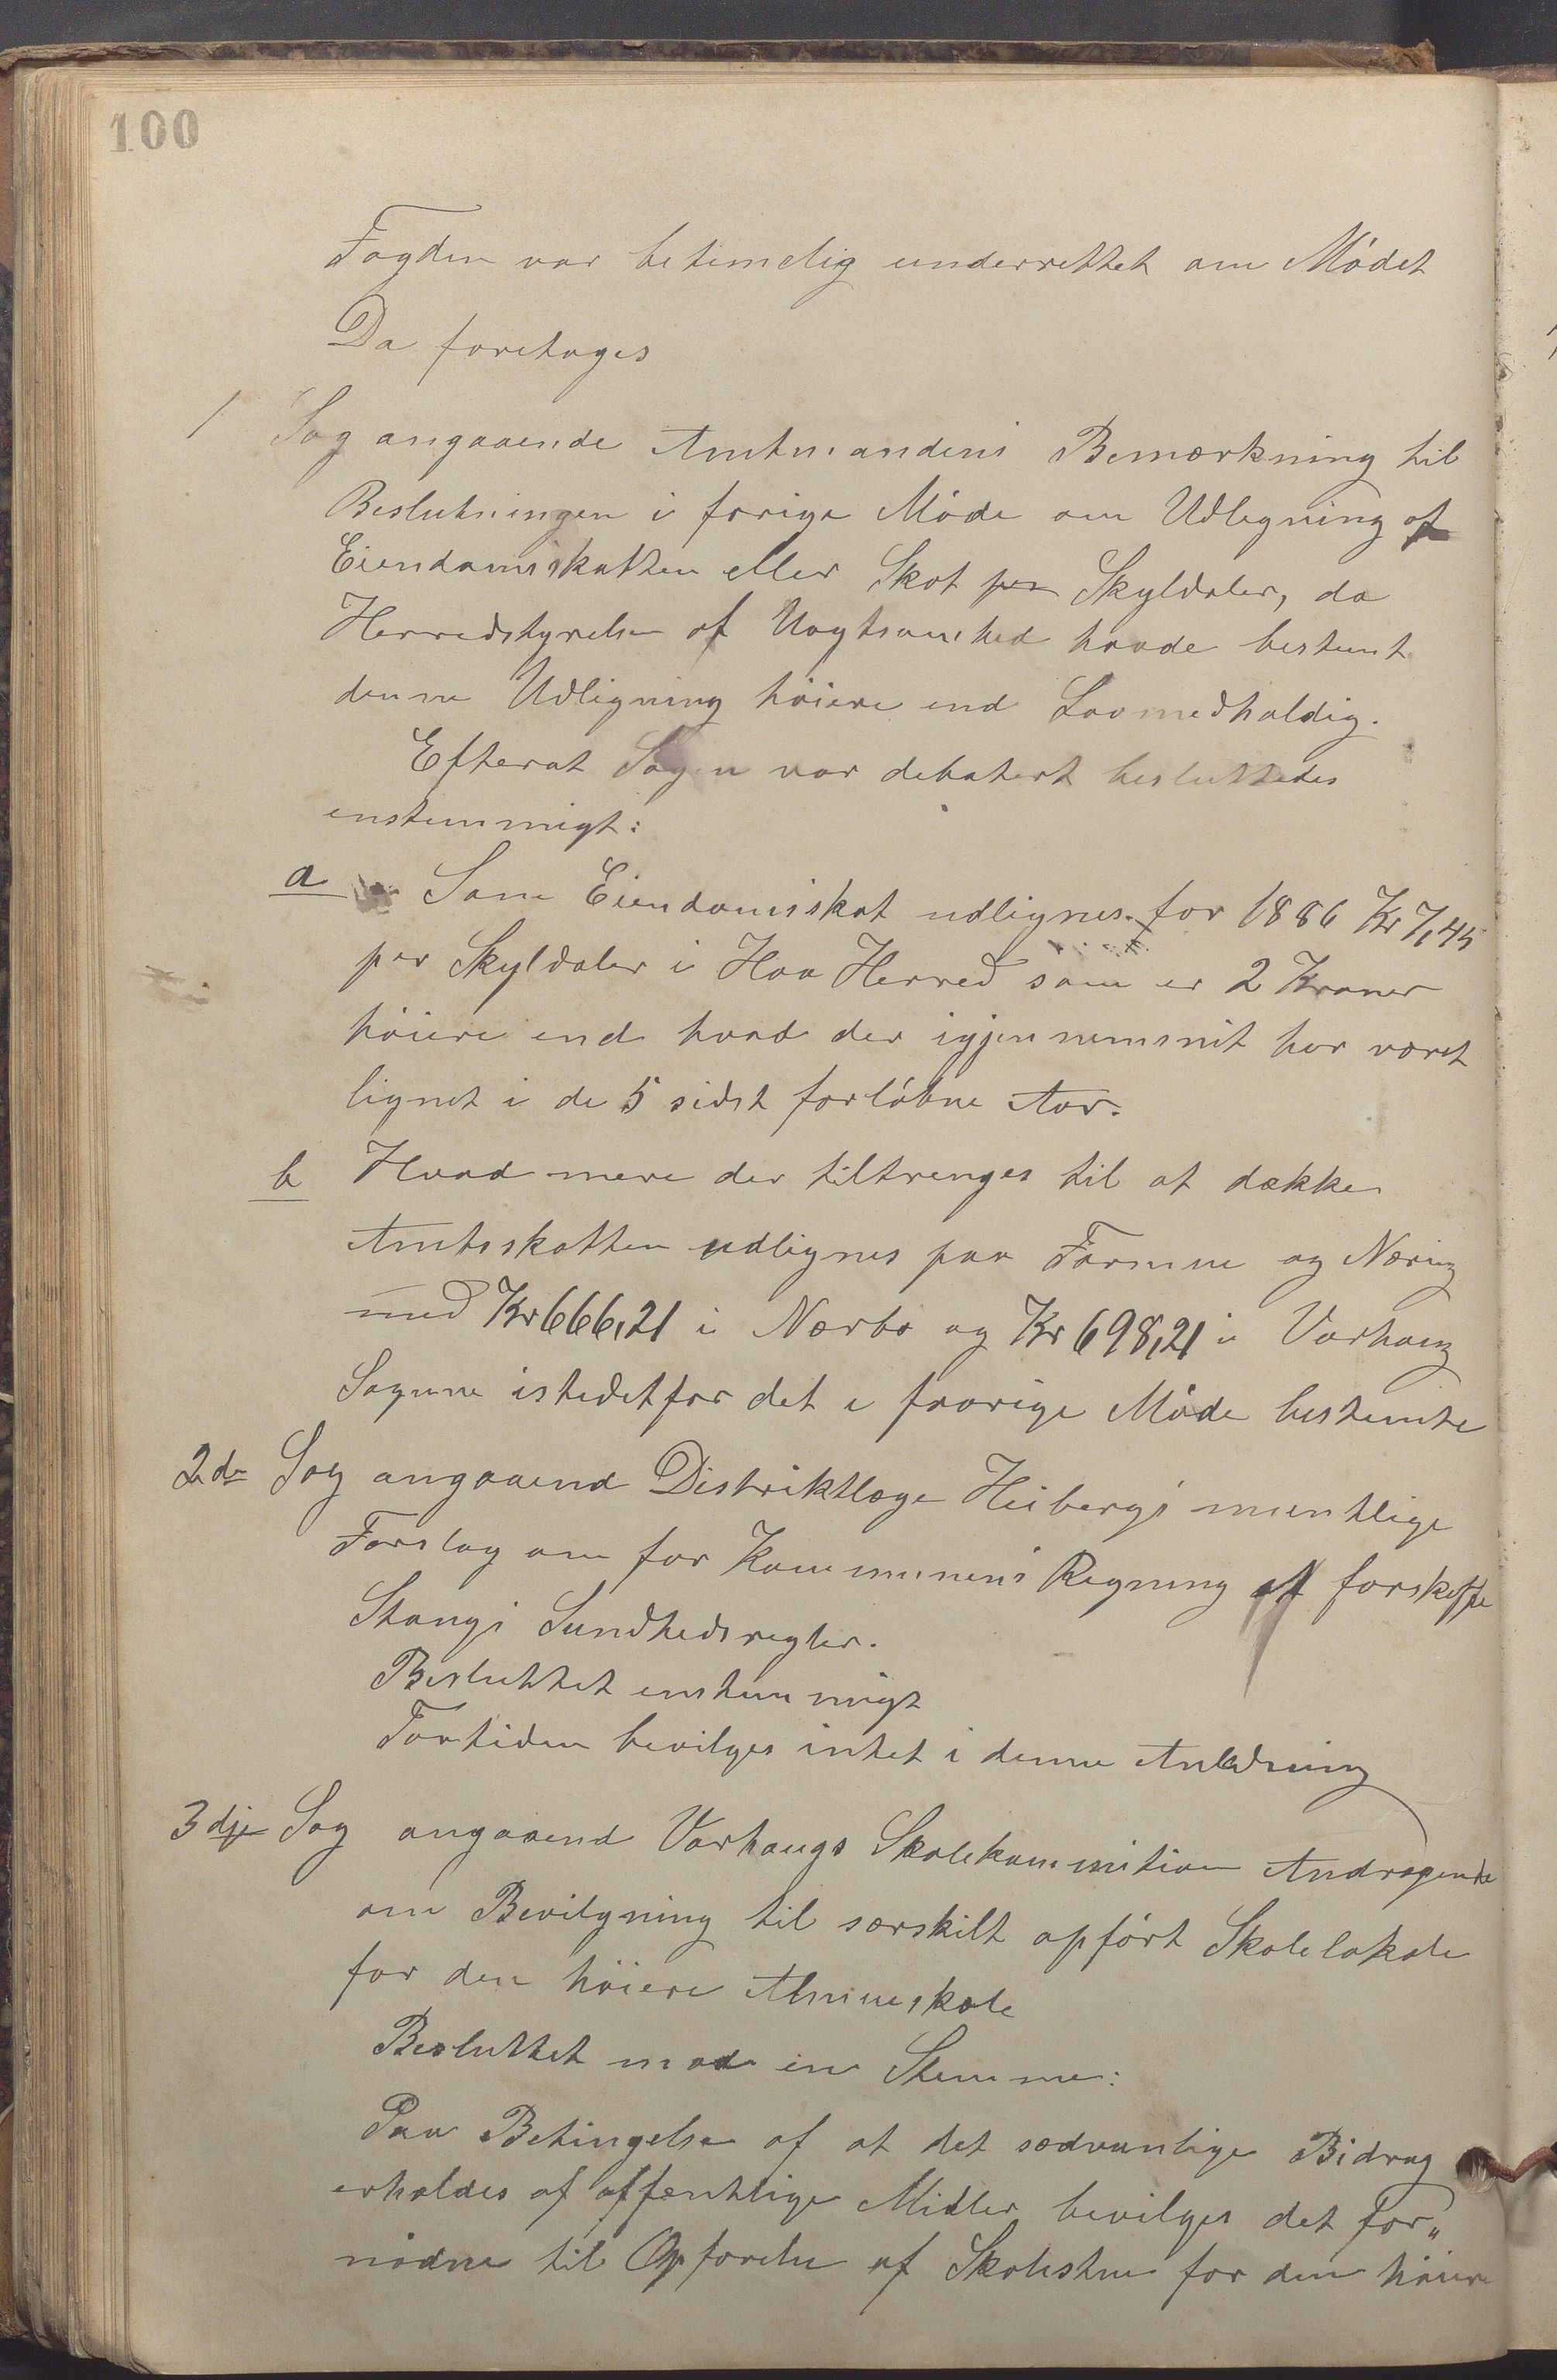 100
Fogden var betimelig underrettet om Mödet
Da foretoges
1 Sag angaaende Amtmandens Bemærkning til
Beslutningen i forige Möde om Udlegning af
Eiendomsskatten eller Skat per Skyldaler, da
Herredstyrelsen af Uagtsomhed havde bestemt
denne Udligning höiere end Lovmedholdig.
Efterat Sagen var debatert besluttedes
enstemmigt:
a Som Eiendomsskat udlignes for 1886 Kr 7,45
per Skyldaler i Haa Herred som er 2 Kroner
höiere end hvad der igjennemsnit har været
lignet i de 5 sidst forlöbne Aar.
b Hvad mere der tiltrenges til at dække
Amtsskatten udlignes paa Formue og Næring
med Kr 666,21 i Nærbø og Kr 698,21 i Varhaug
Sognene istedetfor det i forrige Möde bestemte
2de Sag angaaend Distriktlæge Heibergs muntlige
Forslag om for Kommunens Regning at forskaffe
Stangs Sundhedsregler.
Besluttet enstemmigt
Fortiden bevilges intet i denne Anledning
3dje Sag angaaend Varhaugs Skolekommition Andragende
om Bevilgning til særskilt opfört Skolelokale
for den höiere Almueskole
Besluttet mod en Stemme:
Paa Betingelse af at det sædvanlige Bidrag
erholdes af offentlige Midler bevilges det for„
nödne til Opförelse af Skolestue for den höiere